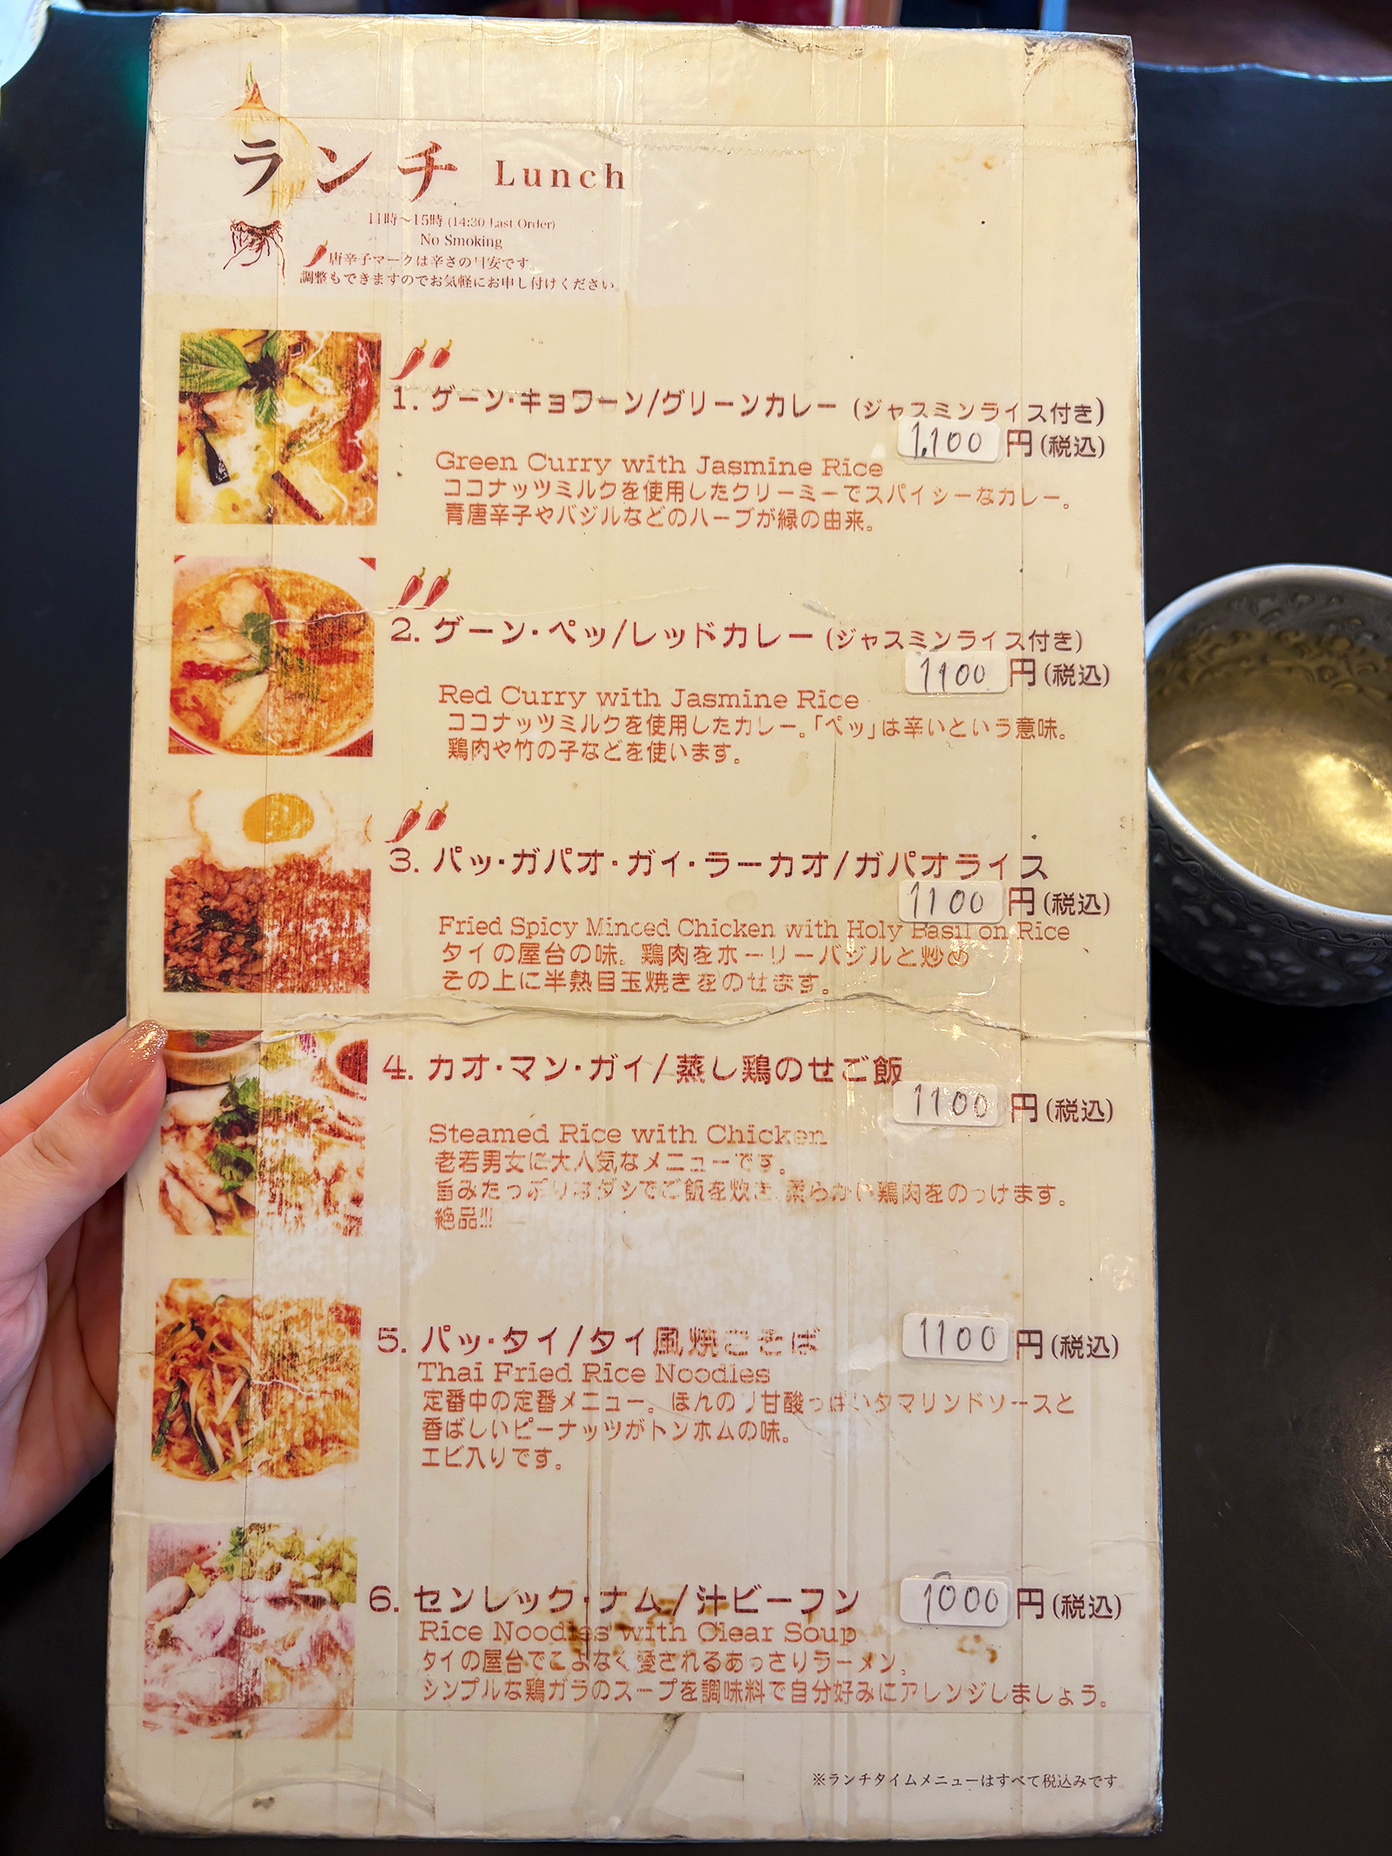 ランチ Lunch
11時～15時 (14:30 Last Order)
No Smoking
唐辛子マークは辛さの目安です
調整もできますのでお気軽にお申し付けください
1. ゲーン・キョワーン/グリーンカレー (ジャスミンライス付き)
1,100 円(税込)
Green Curry with Jasmine Rice
ココナッツミルクを使用したクリーミーでスパイシーなカレー。
青唐辛子やバジルなどのハーブが緑の由来。
2. ゲーン・ペッ/レッドカレー (ジャスミンライス付き)
1100 円(税込)
Red Curry with Jasmine Rice
ココナッツミルクを使用したカレー。「ペッ」は辛いという意味。
鶏肉や竹の子などを使います。
3. パッ・ガパオ・ガイ・ラーカオ/ガパオライス
1100 円(税込)
Fried Spicy Minced Chicken with Holy Basil on Rice
タイの屋台の味。鶏肉をホーリーバジルと炒め
その上に半熟目玉焼きをのせます。
4. カオ・マン・ガイ/蒸し鶏のせご飯
1100 円(税込)
Steamed Rice with Chicken
老若男女に大人気なメニューです。
旨みたっぷりなダシでご飯を炊き 柔らかい鶏肉をのっけます。
絶品!!!
5. パッ・タイ/タイ風焼きそば 1100 円(税込)
Thai Fried Rice Noodles
定番中の定番メニュー。ほんのり甘酸っぱいタマリンドソースと
香ばしいピーナッツがトンホムの味。
エビ入りです。
6. センレック・ナム/汁ビーフン 1000 円(税込)
Rice Noodles with Clear Soup
タイの屋台でこよなく愛されるあっさりラーメン。
シンプルな鶏ガラのスープを調味料で自分好みにアレンジしましょう。
※ランチタイムメニューはすべて税込みです